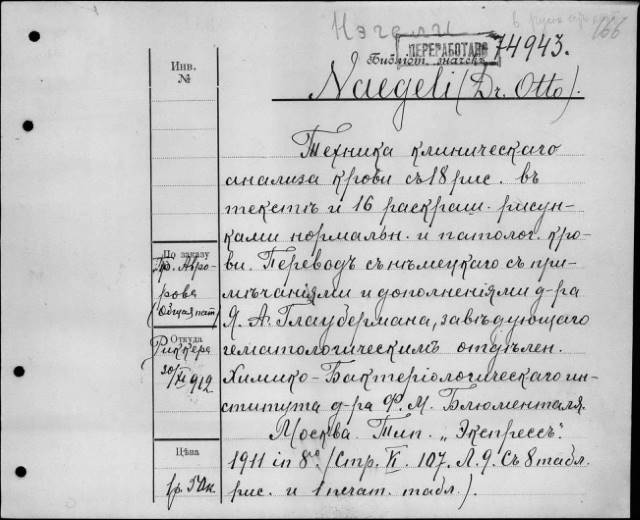 Нэгели
в русск
166
ПЕРЕРАБОТАНО
74943.
Библіот. значекъ
Инв.
№
Naegeli (Dr. Otto).
Техника клиническаго
анализа крови съ 18 рис. въ
текстѣ и 16 раскраш. рисун-
ками нормальн. и патолог. кро-
ви. Переводъ съ нѣмецкаго съ при-
мѣчаніями и дополненіями д-ра
Я. А. Глаубермана, завѣдующаго
гематологическимъ отдѣлен.
Химико-Бактеріологическаго ин-
ститута д-ра Ф. М. Блюменталя.
Москва. Тип. „Экспрессъ".
1911 in 8vo (Стр. II. 107. Л. 9. Съ 8 табл.
рис. и 1 печат. табл.).
По заказу
Пр. Авро-
рова
(Общая пат)
Откуда
Риккера
30/XI 912
Цѣна